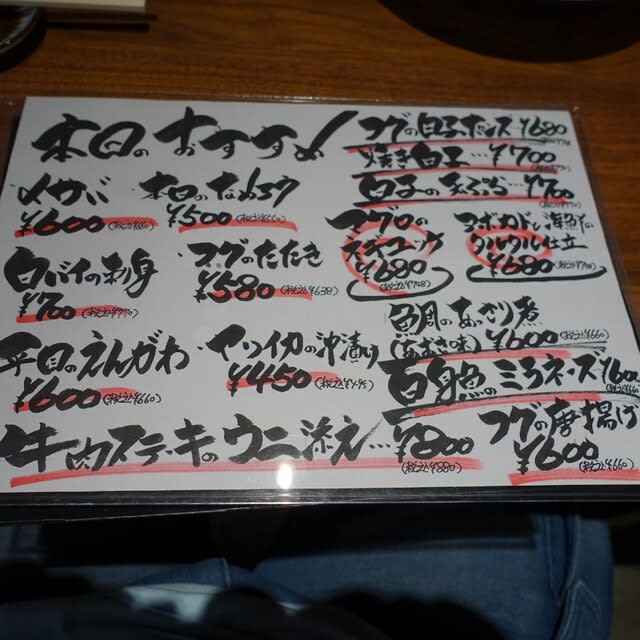 本日のおすすめ!
メサバ
¥600(税込¥660)
本日のなめろう
¥500(税込¥550)
白バイの刺身
¥700(税込¥770)
フグのたたき
¥580(税込¥638)
平目のえんがわ
¥600(税込¥660)
ヤリイカの沖漬け
¥450(税込¥495)
牛肉ステーキのウニ添え…¥800
(税込¥880)
フグの白子ポン酢¥680
焼き白子…¥700
白子の天ぷら…¥700
マグロの
¥680
アボカドと海鮮の
タルタル仕立
¥680
鯛のあさり煮
¥600(税込¥660)
白身魚のミラネーズ¥600
フグの唐揚げ
¥600(税込¥660)